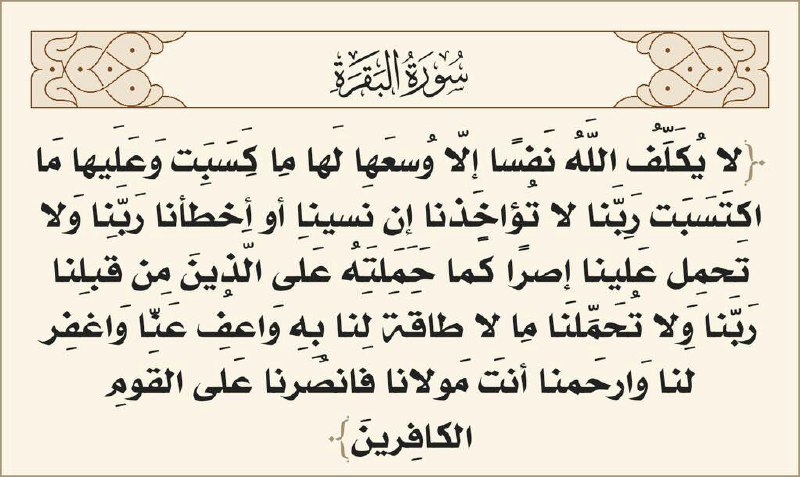 سُورَةُ البَقَرَةِ
﴿لا يُكَلِّفُ اللَّهُ نَفسًا إِلّا وُسعَها لَها ما كَسَبَت وَعَلَيها مَا
اكتَسَبَت رَبَّنا لا تُؤاخِذنا إِن نَسينا أَو أَخطَأنا رَبَّنا وَلا
تَحمِل عَلَينا إِصرًا كَما حَمَلتَهُ عَلَى الَّذينَ مِن قَبلِنا
رَبَّنا وَلا تُحَمِّلنا ما لا طاقَةَ لَنا بِهِ وَاعفُ عَنّا وَاغفِر
لَنا وَارحَمنا أَنتَ مَولانا فَانصُرنا عَلَى القَومِ
الكافِرينَ﴾